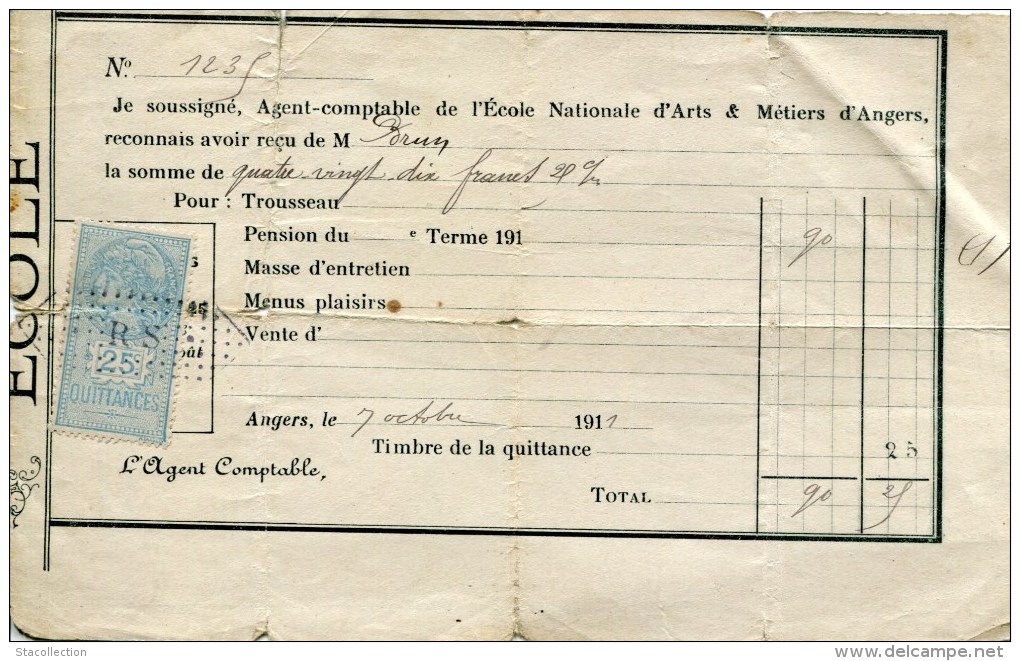 ECOLE
N° 1235
Je soussigné, Agent-comptable de l'École Nationale d'Arts & Métiers d'Angers,
reconnais avoir reçu de M Brun
la somme de quatre vingt dix francs 25 c/m
Pour : Trousseau
Pension du e Terme 191 90 (1)
Masse d'entretien
Menus plaisirs
Vente d'
R S
25c
QUITTANCES
Angers, le 7 octobre 1911
Timbre de la quittance 25
L'Agent Comptable,
TOTAL 90 25
Stacollection
delcampe.net